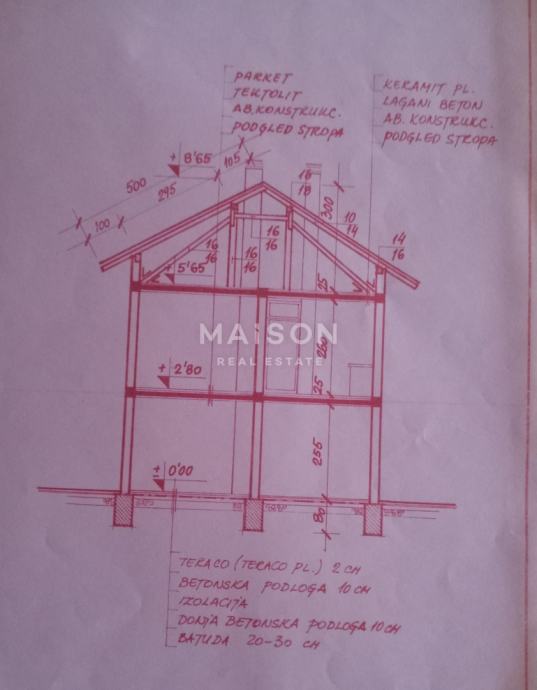 PARKET
TEKTOLIT
AB. KONSTRUKC.
PODGLED STROPA
KERAMIT PL.
LAGANI BETON
AB. KONSTRUKC.
PODGLED STROPA
+ 8'65
105
500
295
100
16
18
300
10
14
14
16
16
16
16
16
+ 5'65
25
MAISON
REAL ESTATE
260
+ 2'80
25
255
+ 0'00
80
TERACO (TERACO PL.) 2 CM
BETONSKA PODLOGA 10 CM
IZOLACIJA
DONJA BETONSKA PODLOGA 10 CM
BATUDA 20-30 CM